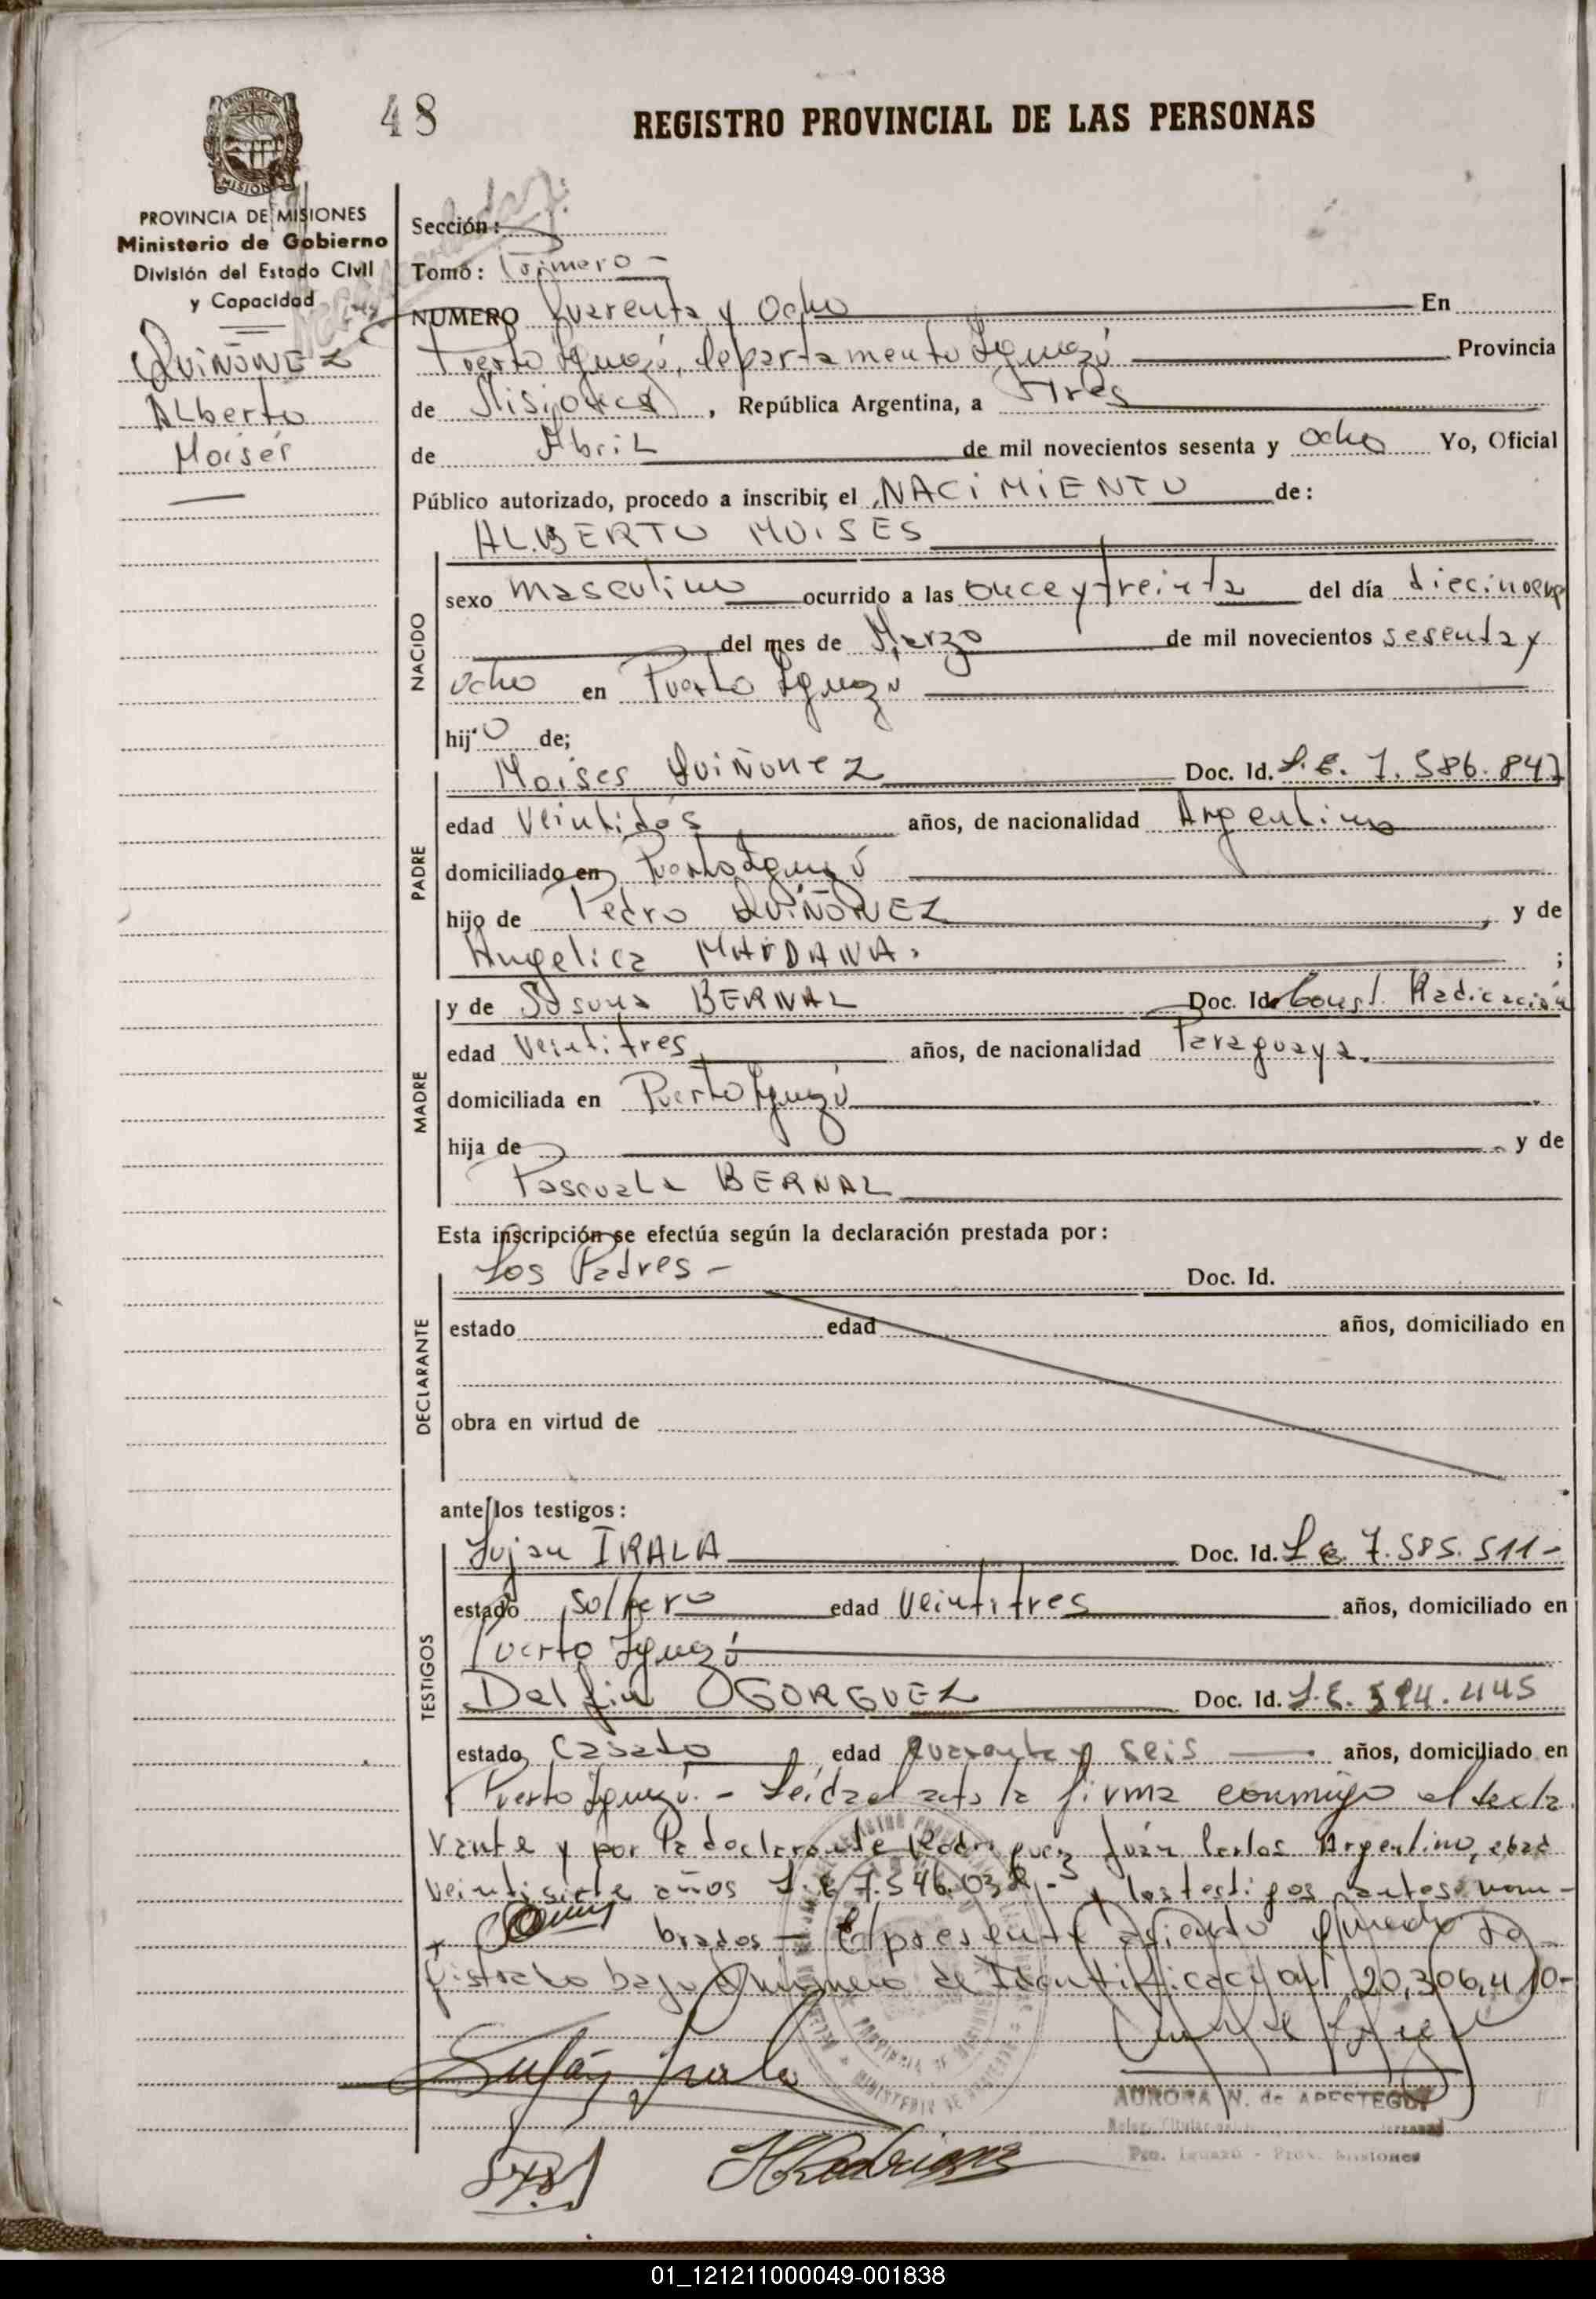 48
REGISTRO PROVINCIAL DE LAS PERSONAS
PROVINCIA DE MISIONES
Ministerio de Gobierno
División del Estado Civil
y Capacidad
QUIÑONEZ
Alberto
Moisés
Sección:
Tomo: Primero -
NUMERO Cuarenta y Ocho En
Puerto Iguazú, departamento Iguazú Provincia
de Misiones, República Argentina, a Tres
de Abril de mil novecientos sesenta y ocho Yo, Oficial
Público autorizado, procedo a inscribir el NACIMIENTO de:
ALBERTO MOISES
NACIDO
sexo masculino ocurrido a las once y treinta del día diecinueve
del mes de Marzo de mil novecientos sesenta y
ocho en Puerto Iguazú
hijo de;
PADRE
Moises Quiñonez Doc. Id. L.E. 7.586.847
edad veintidós años, de nacionalidad Argentino
domiciliado en Puerto Iguazú
hijo de Pedro QUIÑONEZ, y de
Angelica MAIDANA. ;
MADRE
y de Susana BERNAL Doc. Id. Const. Radicación
edad veintitres años, de nacionalidad Paraguaya.
domiciliada en Puerto Iguazú
hija de y de
Pascuala BERNAL
Esta inscripción se efectúa según la declaración prestada por:
DECLARANTE
Los Padres - Doc. Id.
estado edad años, domiciliado en
obra en virtud de
ante los testigos:
TESTIGOS
Lujan IRALA Doc. Id. L.E. 7.585.511-
estado soltero edad veintitres años, domiciliado en
Puerto Iguazú
Delfin OGORGUEZ Doc. Id. L.E. 594.445
estado casado edad cuarenta y seis años, domiciliado en
Puerto Iguazú. - Leída el acta la firma conmigo el decla
rante y por la declarante Rodriguez Juán Carlos Argentino, edad
veintisiete años L.E 7.546.032.- y los testigos antes nom-
brados - El presente asiento queda re
gistrado bajo número de Identificación 20,306,410-
Luján Irala
AURORA N. de APESTEGUI
Pto. Iguazú - Prov. Misiones
01_121211000049-001838